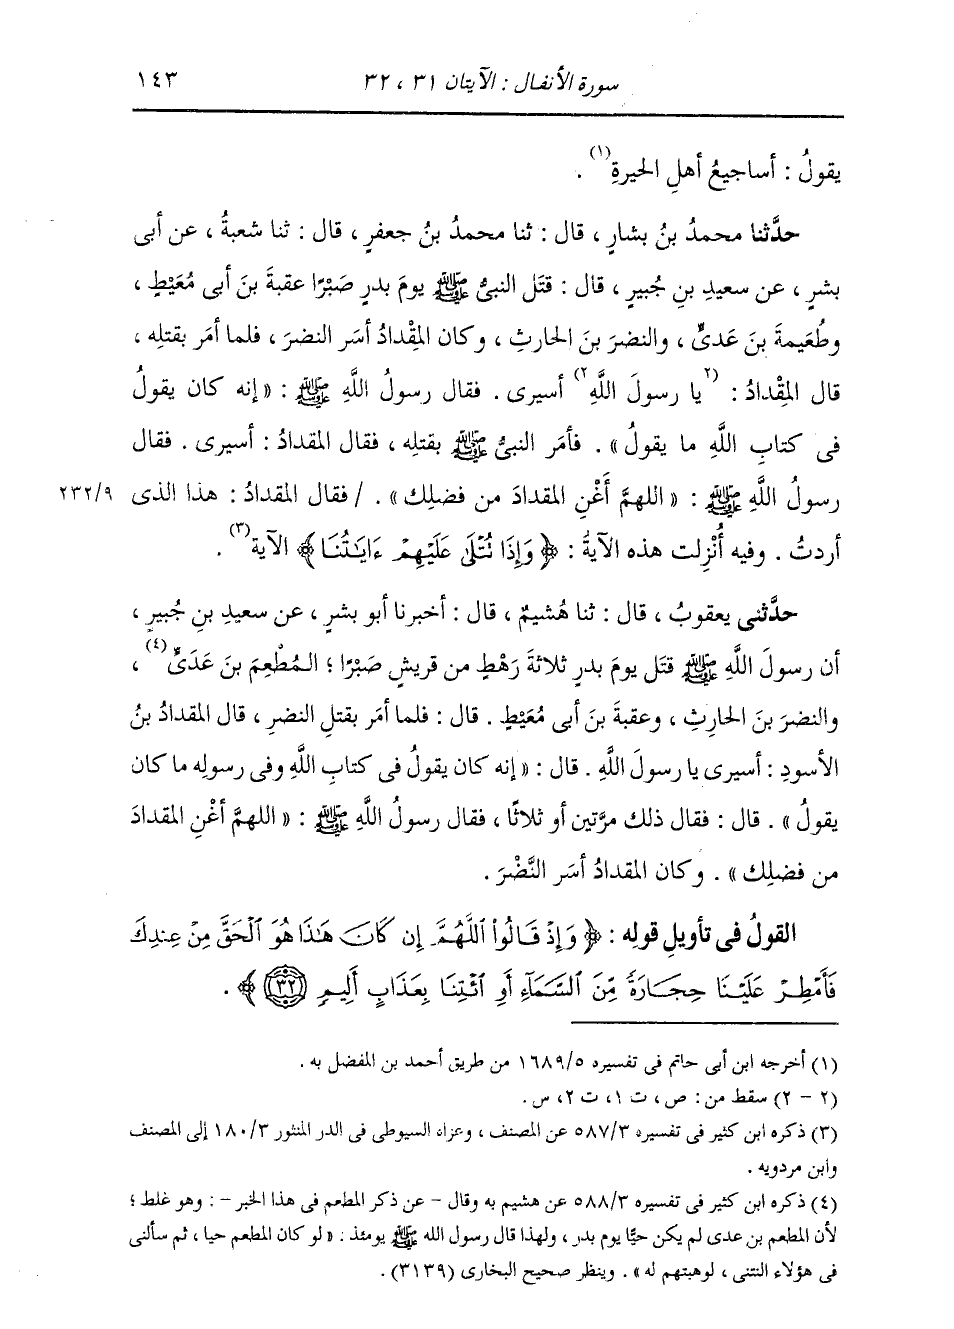 سورة الأنفال : الآيتان ٣١ ، ٣٢ ١٤٣
يقولُ : أساجيعُ أهلِ الحيرةِ(١) .
حدَّثنا محمدُ بنُ بشارٍ ، قال : ثنا محمدُ بنُ جعفرٍ ، قال : ثنا شعبةُ ، عن أبى
بشرٍ ، عن سعيدِ بنِ جُبيرٍ ، قال : قتَل النبىُّ ﷺ يومَ بدرٍ صَبْرًا عقبةَ بنَ أبى مُعَيْطٍ ،
وطُعَيمةَ بنَ عَدىٍّ ، والنضرَ بنَ الحارثِ ، وكان المِقْدادُ أسَر النضرَ ، فلما أمَر بقتلِه ،
قال المِقْدادُ : (٢) يا رسولَ اللَّهِ(٢) أسيرى . فقال رسولُ اللَّهِ ﷺ : « إنه كان يقولُ
فى كتابِ اللَّهِ ما يقولُ » . فأمَر النبىُّ ﷺ بقتلِه ، فقال المقدادُ : أسيرى . فقال
رسولُ اللَّهِ ﷺ : « اللهمَّ أَغْنِ المقدادَ من فضلِك » . / فقال المقدادُ : هذا الذى ٢٣٢/٩
أردتُ . وفيه أُنْزِلت هذه الآيةُ : ﴿ وَإِذَا تُتْلَىٰ عَلَيْهِمْ ءَايَـٰتُنَا ﴾ الآية(٣) .
حدَّثنى يعقوبُ ، قال : ثنا هُشيمٌ ، قال : أخبرنا أبو بشرٍ ، عن سعيدِ بنِ جُبيرٍ ،
أن رسولَ اللَّهِ ﷺ قتَل يومَ بدرٍ ثلاثةَ رَهْطٍ من قريشٍ صَبْرًا ؛ المُطْعِمَ بنَ عَدىٍّ(٤) ،
والنضرَ بنَ الحارِثِ ، وعقبةَ بنَ أبى مُعَيْطٍ . قال : فلما أمَر بقتلِ النضرِ ، قال المقدادُ بنُ
الأسودِ : أسيرى يا رسولَ اللَّهِ . قال : « إنه كان يقولُ فى كتابِ اللَّهِ وفى رسولِه ما كان
يقولُ » . قال : فقال ذلك مرَّتين أو ثلاثًا ، فقال رسولُ اللَّهِ ﷺ : « اللهمَّ أغْنِ المقدادَ
من فضلِك » . وكان المقدادُ أسَر النَّضْرَ .
القولُ فى تأويلِ قولِه : ﴿ وَإِذْ قَالُوا۟ ٱللَّهُمَّ إِن كَانَ هَـٰذَا هُوَ ٱلْحَقَّ مِنْ عِندِكَ
فَأَمْطِرْ عَلَيْنَا حِجَارَةً مِّنَ ٱلسَّمَآءِ أَوِ ٱئْتِنَا بِعَذَابٍ أَلِيمٍ (٣٢) ﴾ .
(١) أخرجه ابن أبى حاتم فى تفسيره ١٦٨٩/٥ من طريق أحمد بن المفضل به .
(٢ - ٢) سقط من : ص ، ت ١، ت ٢، س .
(٣) ذكره ابن كثير فى تفسيره ٥٨٧/٣ عن المصنف ، وعزاه السيوطى فى الدر المنثور ١٨٠/٣ إلى المصنف
وابن مردويه .
(٤) ذكره ابن كثير فى تفسيره ٥٨٨/٣ عن هشيم به وقال - عن ذكر المطعم فى هذا الخبر - : وهو غلط ؛
لأن المطعم بن عدى لم يكن حيًّا يوم بدر ، ولهذا قال رسول الله ﷺ يومئذ : « لو كان المطعم حيا ، ثم سألنى
فى هؤلاء النتنى ، لوهبتهم له » . وينظر صحيح البخارى (٣١٣٩) .